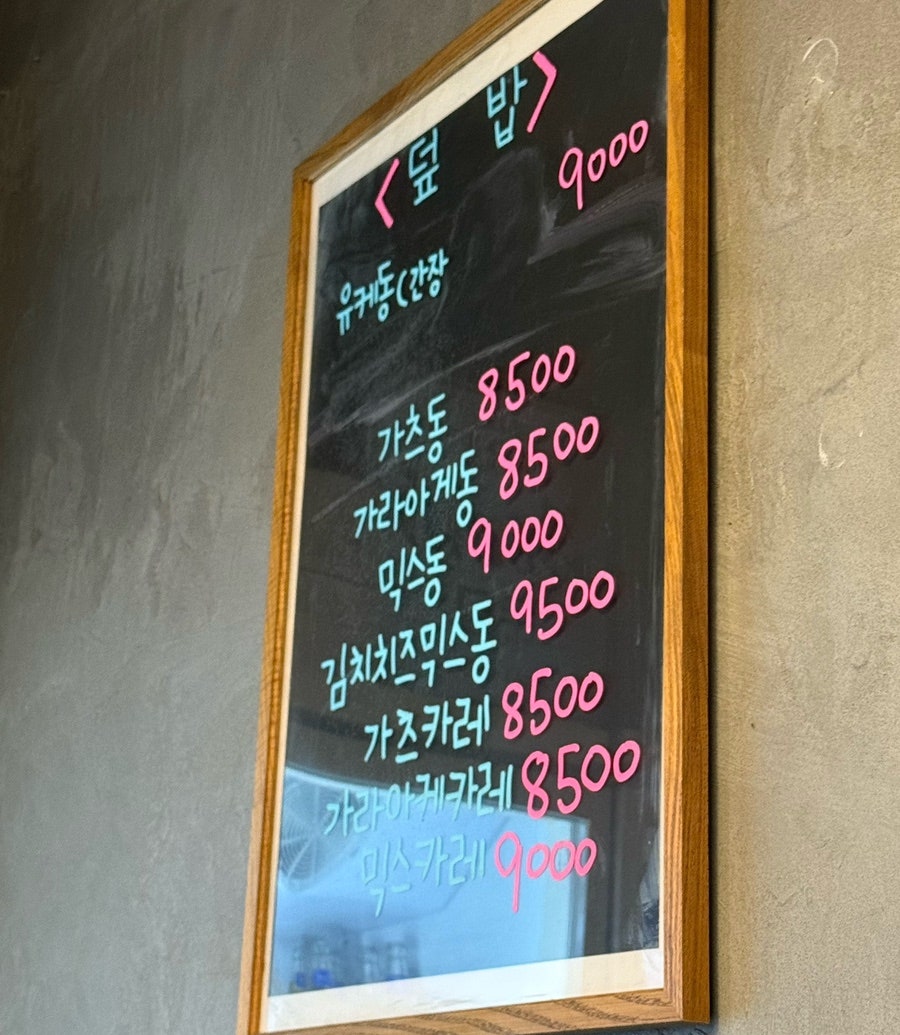 <덮 밥>
유케동(간장 9000
가츠동 8500
가라아게동 8500
믹스동 9000
김치치즈믹스동 9500
가츠카레 8500
가라아케카레 8500
믹스카레 9000